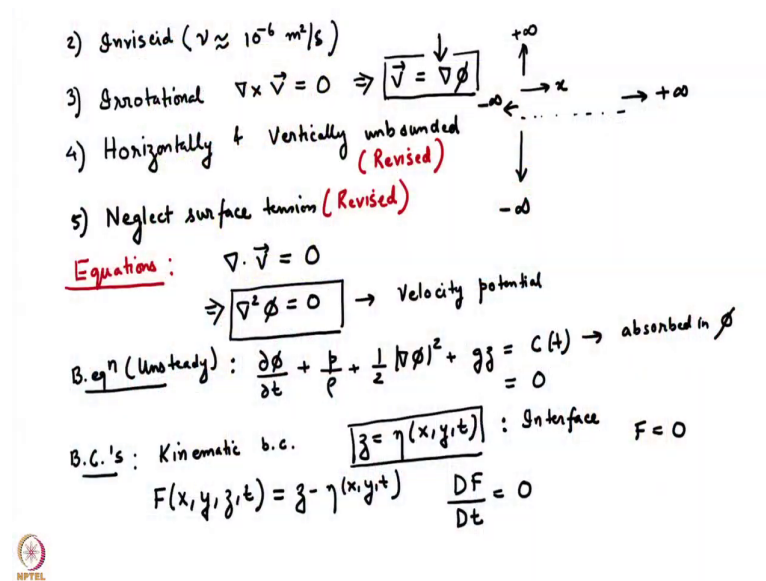 2) Inviscid (ν ≈ 10⁻⁶ m²/s)
+∞
3) Irrotational ∇ × V⃗ = 0 ⇒ V⃗ = ∇φ
x
-∞
+∞
4) Horizontally & Vertically unbounded
(Revised)
5) Neglect surface tension (Revised)
-∞
Equations : ∇ · V⃗ = 0
⇒ ∇²φ = 0 → Velocity potential
B. eqⁿ (Unsteady) : ∂φ/∂t + p/ρ + 1/2 |∇φ|² + gz = C(t) → absorbed in φ
= 0
B.C.'s : Kinematic b.c. z = η(x,y,t) : Interface F = 0
F(x,y,z,t) = z - η(x,y,t) DF/Dt = 0
NPTEL